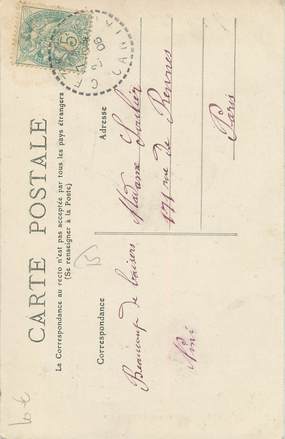 CARTE POSTALE
La Correspondance au recto n'est pas acceptée par tous les pays étrangers
(Se renseigner à la Poste)
Correspondance
Adresse
Beaucoup de baisers
Madame
171 rue de Rennes
Paris
15
5